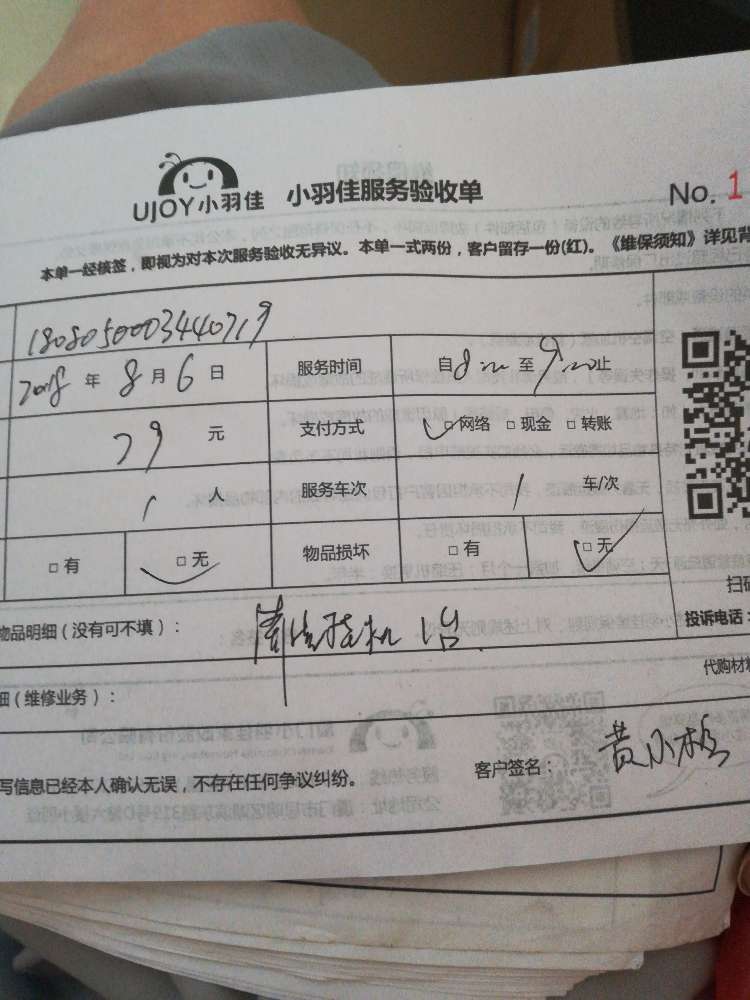 UJOY小羽佳 小羽佳服务验收单 No. 1
本单一经核签，即视为对本次服务验收无异议。本单一式两份，客户留存一份(红)。《维保须知》详见背
1808050003440719
2018 年 8 月 6 日 服务时间 自 8:00 至 9:00 止
79 元 支付方式 ☑网络 □现金 □转账
1 人 服务车次 1 车/次
□有 □无 物品损坏 □有 □无
扫码
物品明细（没有可不填）： 清洗挂机 1台 投诉电话：
细（维修业务）： 代购材料
写信息已经本人确认无误，不存在任何争议纠纷。 客户签名： 黄小